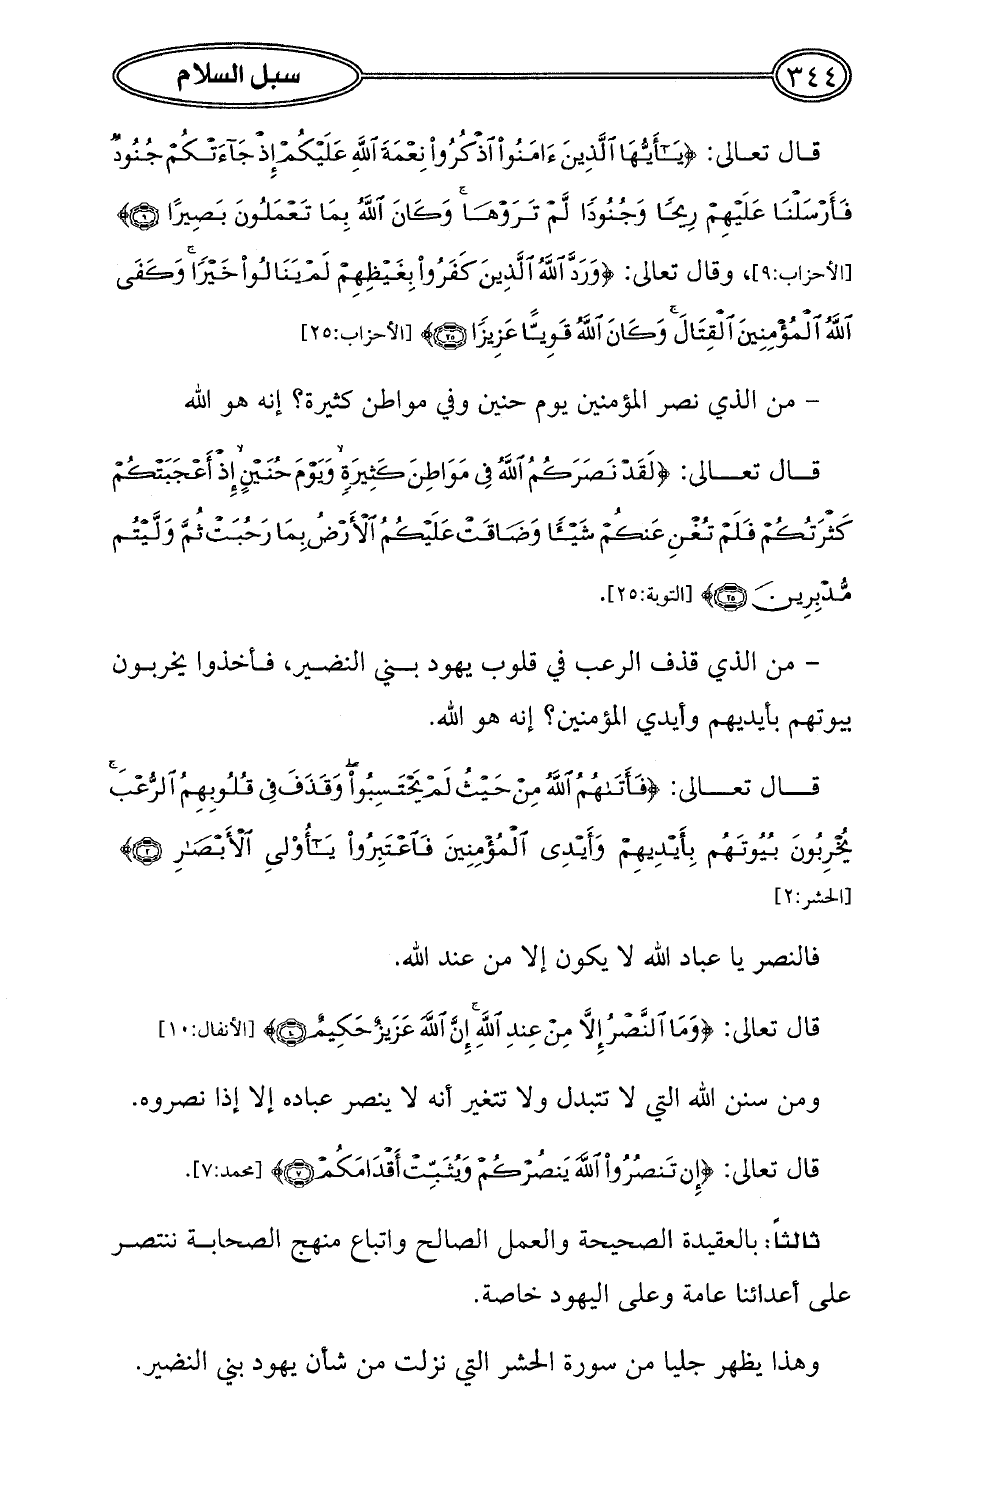 ٣٤٤ سبل السلام
قال تعالى: ﴿يَٰٓأَيُّهَا ٱلَّذِينَ ءَامَنُوا۟ ٱذْكُرُوا۟ نِعْمَةَ ٱللَّهِ عَلَيْكُمْ إِذْ جَآءَتْكُمْ جُنُودٌ
فَأَرْسَلْنَا عَلَيْهِمْ رِيحًا وَجُنُودًا لَّمْ تَرَوْهَا ۚ وَكَانَ ٱللَّهُ بِمَا تَعْمَلُونَ بَصِيرًا ۝٩﴾
[الأحزاب:٩]، وقال تعالى: ﴿وَرَدَّ ٱللَّهُ ٱلَّذِينَ كَفَرُوا۟ بِغَيْظِهِمْ لَمْ يَنَالُوا۟ خَيْرًا ۚ وَكَفَى
ٱللَّهُ ٱلْمُؤْمِنِينَ ٱلْقِتَالَ ۚ وَكَانَ ٱللَّهُ قَوِيًّا عَزِيزًا ۝٢٥﴾ [الأحزاب:٢٥]
- من الذي نصر المؤمنين يوم حنين وفي مواطن كثيرة؟ إنه هو الله
قال تعالى: ﴿لَقَدْ نَصَرَكُمُ ٱللَّهُ فِى مَوَاطِنَ كَثِيرَةٍ ۙ وَيَوْمَ حُنَيْنٍ ۙ إِذْ أَعْجَبَتْكُمْ
كَثْرَتُكُمْ فَلَمْ تُغْنِ عَنكُمْ شَيْـًٔا وَضَاقَتْ عَلَيْكُمُ ٱلْأَرْضُ بِمَا رَحُبَتْ ثُمَّ وَلَّيْتُم
مُّدْبِرِينَ ۝٢٥﴾ [التوبة:٢٥].
- من الذي قذف الرعب في قلوب يهود بني النضير، فأخذوا يخربون
بيوتهم بأيديهم وأيدي المؤمنين؟ إنه هو الله.
قال تعالى: ﴿فَأَتَىٰهُمُ ٱللَّهُ مِنْ حَيْثُ لَمْ يَحْتَسِبُوا۟ ۖ وَقَذَفَ فِى قُلُوبِهِمُ ٱلرُّعْبَ ۚ
يُخْرِبُونَ بُيُوتَهُم بِأَيْدِيهِمْ وَأَيْدِى ٱلْمُؤْمِنِينَ فَٱعْتَبِرُوا۟ يَٰٓأُو۟لِى ٱلْأَبْصَٰرِ ۝٢﴾
[الحشر:٢]
فالنصر يا عباد الله لا يكون إلا من عند الله.
قال تعالى: ﴿وَمَا ٱلنَّصْرُ إِلَّا مِنْ عِندِ ٱللَّهِ ۚ إِنَّ ٱللَّهَ عَزِيزٌ حَكِيمٌ﴾ [الأنفال:١٠]
ومن سنن الله التي لا تتبدل ولا تتغير أنه لا ينصر عباده إلا إذا نصروه.
قال تعالى: ﴿إِن تَنصُرُوا۟ ٱللَّهَ يَنصُرْكُمْ وَيُثَبِّتْ أَقْدَامَكُمْ ۝٧﴾ [محمد:٧].
ثالثاً: بالعقيدة الصحيحة والعمل الصالح واتباع منهج الصحابة ننتصر
على أعدائنا عامة وعلى اليهود خاصة.
وهذا يظهر جليا من سورة الحشر التي نزلت من شأن يهود بني النضير.